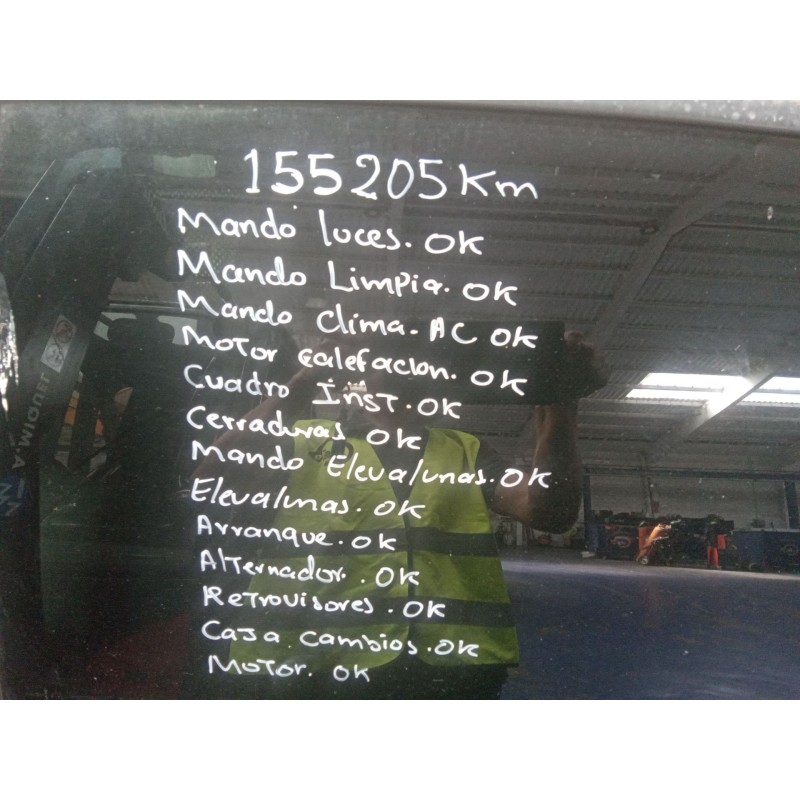 155205 Km
Mando luces. OK
Mando Limpia. OK
Mando Clima. AC OK
Motor calefacion. OK
Cuadro Inst. OK
Cerraduras OK
Mando Elevalunas. OK
Elevalunas. OK
Arranque. OK
Alternador. OK
Retrovisores. OK
Caja cambios. OK
Motor. OK